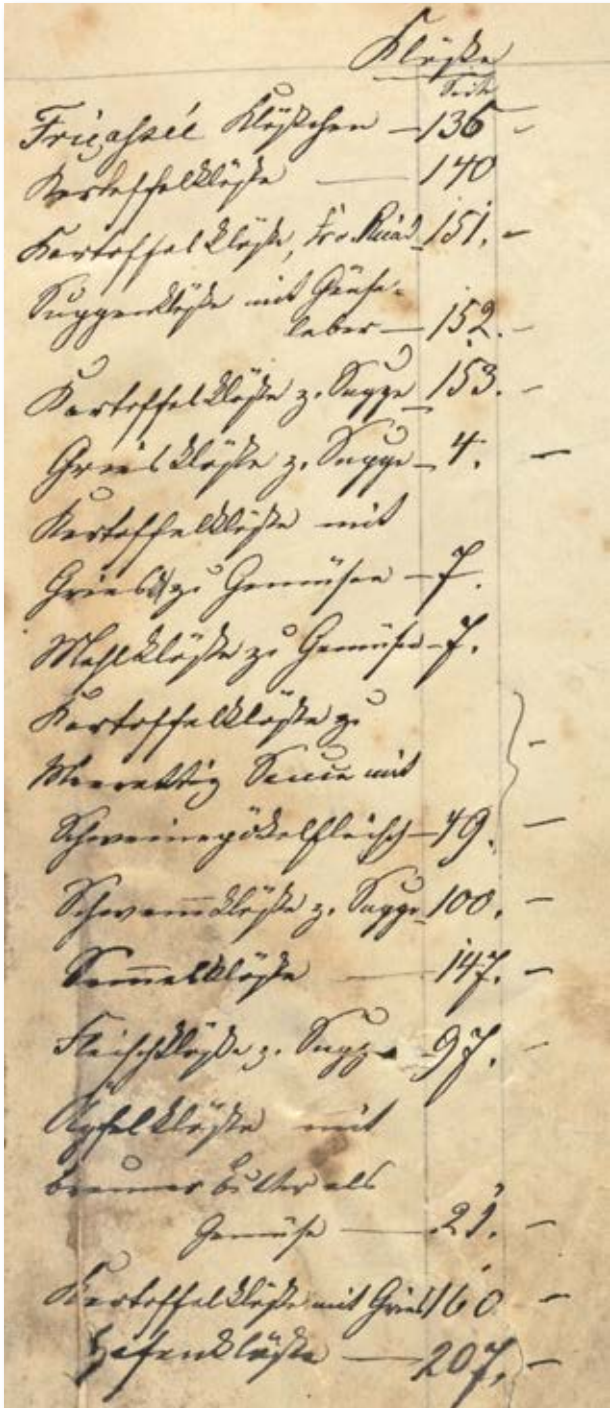 Klöße
Seite
Fricassée Klößchen — 136 –
Kartoffelklöße — 140
Kartoffelklöße, 151. –
Suppenklöße mit Gänse-
leber — 152. –
Kartoffelklöße z. Suppe 153. –
Griesklöße z. Suppe – 4. –
Kartoffelklöße mit
Gries zu Gemüsen – 7.
Mehlklöße zu Gemüsen – 7.
Kartoffelklöße zu
Meerettig Sauce mit –
Schweinepökelfleisch – 49. –
Schwemmklöße z. Suppe 100. –
Semmelklöße — 147. –
Fleischklöße z. Suppe 97. –
Äpfelklöße mit
brauner Butter als
Gemüse — 21. –
Kartoffelklöße mit Gries 160 –
Hefenklöße — 207. –